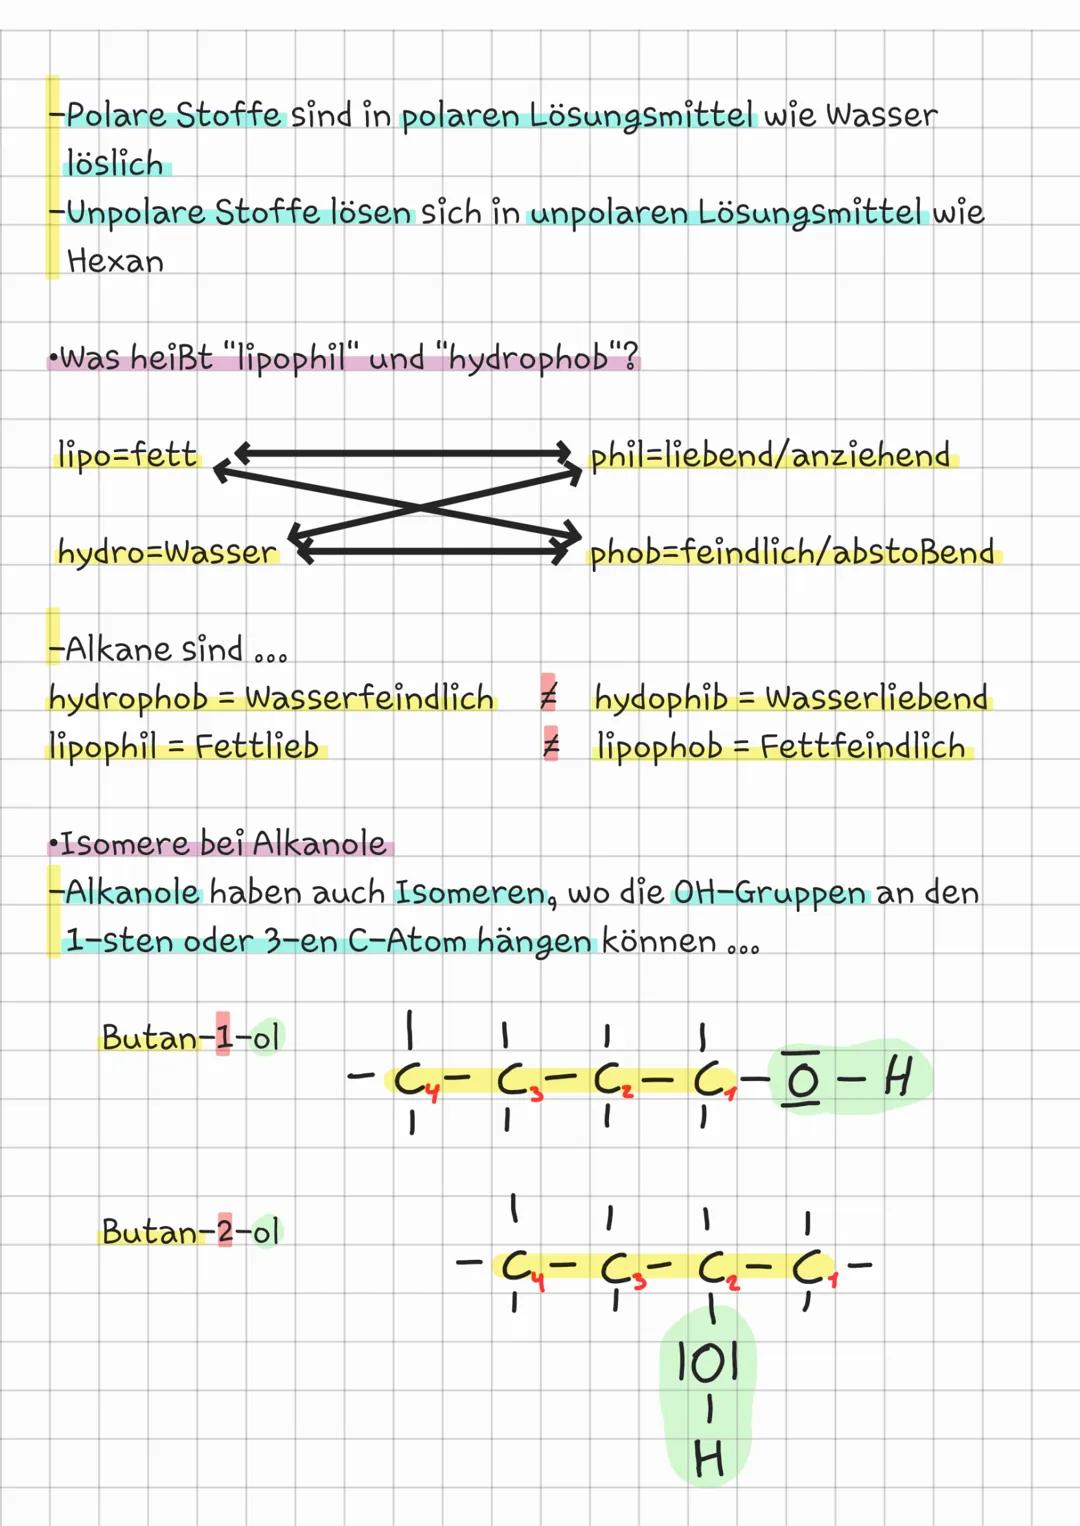 -Polare Stoffe sind in polaren Lösungsmittel wie Wasser
löslich
-Unpolare Stoffe lösen sich in unpolaren Lösungsmittel wie
Hexan
•Was heißt "lipophil" und "hydrophob"?
lipo=fett phil=liebend/anziehend
hydro=Wasser phob=feindlich/abstoßend
-Alkane sind ...
hydrophob = Wasserfeindlich ≠ hydophib = Wasserliebend
lipophil = Fettlieb ≠ lipophob = Fettfeindlich
•Isomere bei Alkanole
-Alkanole haben auch Isomeren, wo die OH-Gruppen an den
1-sten oder 3-en C-Atom hängen können ...
Butan-1-ol
- C4 - C3 - C2 - C1 - O - H
Butan-2-ol
- C4 - C3 - C2 - C1 -
|O|
H